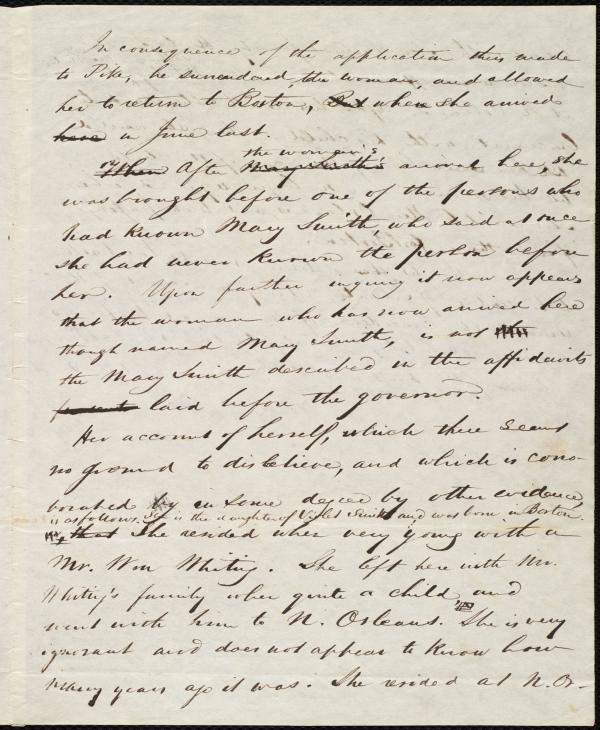 In consequence of the application thus made
to Pike, he surrendered the woman, and allowed
her to return to Boston, But when she arived
here in June last.
When After the woman's Mary Smith's arrival here, she
was brought before one of the persons who
had known Mary Smith, who said at once
she had never known the person before
her. Upon further inquiry it now appears
that the woman who has now arrived here
though named Mary Smith, is not
the Mary Smith described in the affidavits
laid before the governor.
Her account of herself, which there seems
no ground to disbelieve, and which is corro-
borated by in some degree by other evidence,
is as follows. She is the daughter of Violet Smith and was born in Boston.
that She resided when very young with a
Mr. Wm Whiting. She left here with Mr.
Whiting's family when quite a child, and
went with him to N. Orleans. She is very
ignorant and does not appear to know how
many years ago it was. She resided at N. Or-